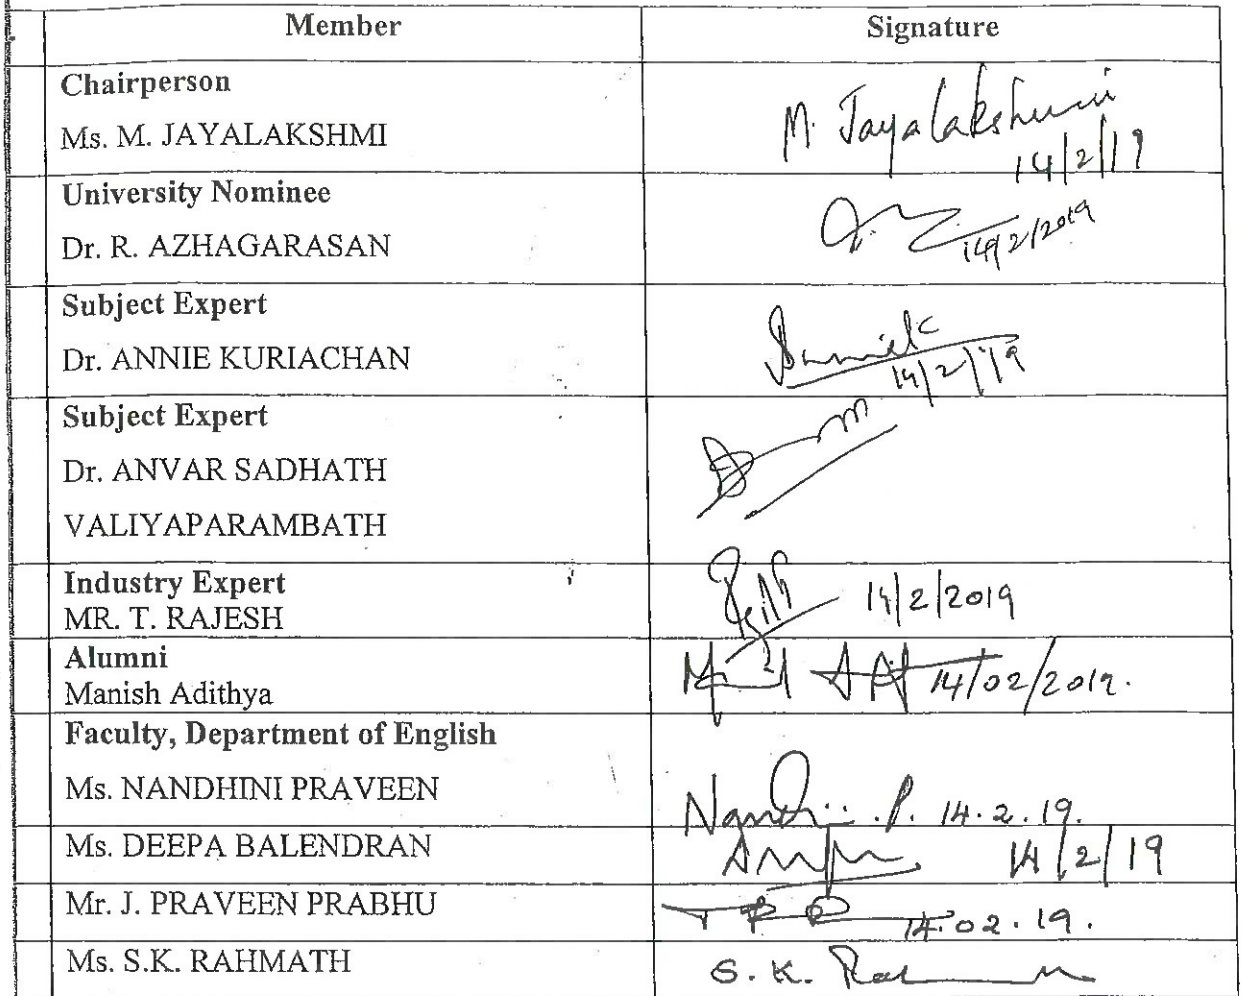 Member Signature
Chairperson
Ms. M. JAYALAKSHMI
M. Jayalakshmi
14/2/19
University Nominee
Dr. R. AZHAGARASAN
14/2/2019
Subject Expert
Dr. ANNIE KURIACHAN
14/2/19
Subject Expert
Dr. ANVAR SADHATH
VALIYAPARAMBATH
Industry Expert
MR. T. RAJESH
14/2/2019
Alumni
Manish Adithya
14/02/2019.
Faculty, Department of English
Ms. NANDHINI PRAVEEN
Nandhini. P. 14.2.19.
Ms. DEEPA BALENDRAN
14/2/19
Mr. J. PRAVEEN PRABHU
14.02.19.
Ms. S.K. RAHMATH
S. K.